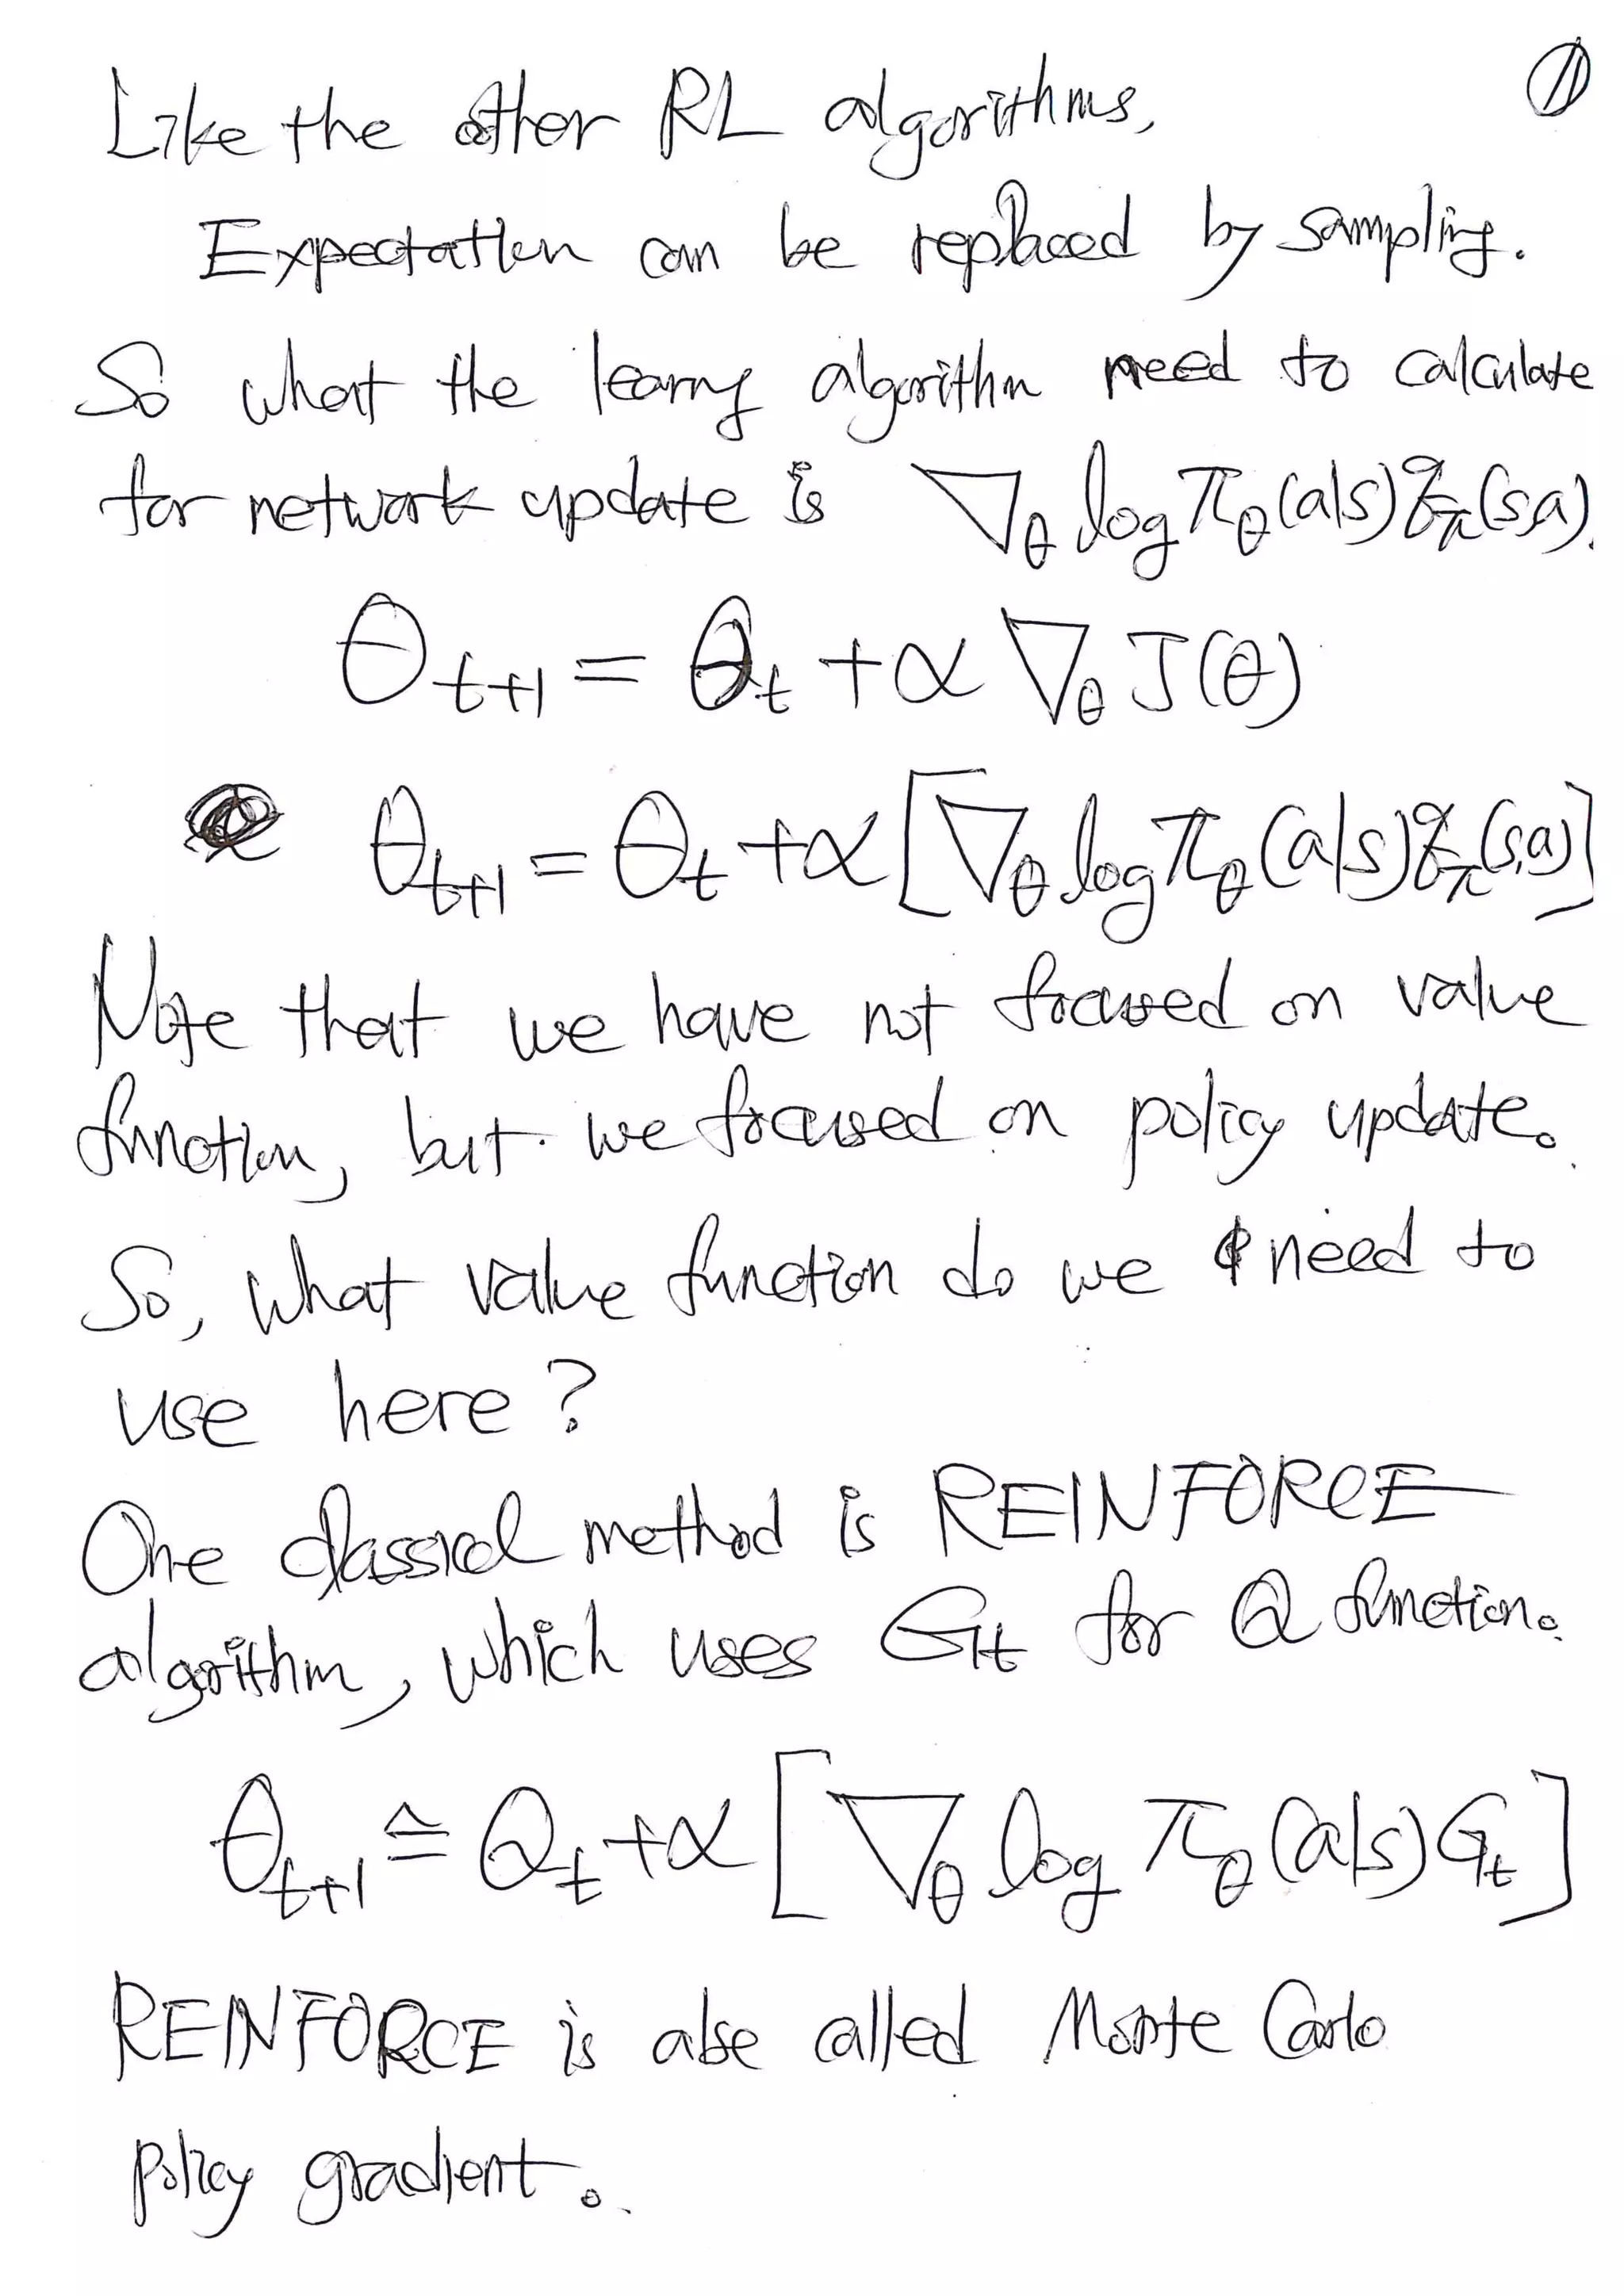 ⑪
Like the other RL algorithms,
Expectation can be replaced by sampling.
So what the learng algorithm need to calculate
for network update is ∇θ log πθ(a|s) qπ(s,a).
θt+1 = θt + α ∇θ J(θ)
θt+1 = θt + α [∇θ log πθ(a|s) qπ(s,a)]
Note that we have not focused on value
function, but we focused on policy update.
So, what value function do we need to
use here?
One classical method is REINFORCE
algorithm, which uses Gt for Q function.
θt+1 ≙ θt + α [∇θ log πθ(a|s) Gt]
REINFORCE is also called Monte Carlo
policy gradient.